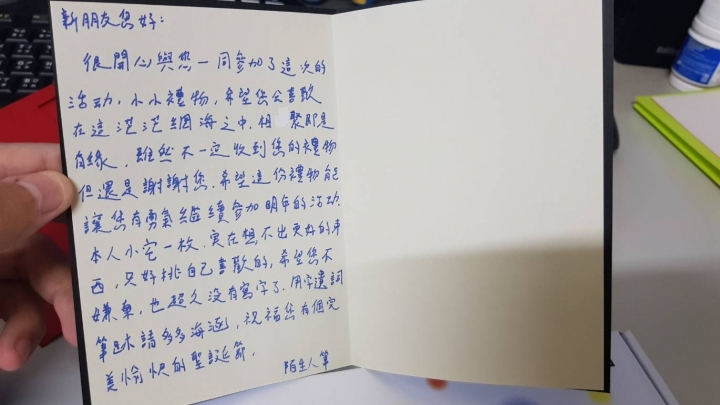 新朋友您好：
很開心與您一同參加了這次的
活动，小小禮物，希望您会喜歡
在這茫茫網海之中，相聚即是
有緣，雖然不一定收到您的禮物
但還是謝謝您，希望這份禮物能
讓您有勇氣繼續參加明年的活动
本人小宅一枚，實在想不出更好的东
西，只好挑自己喜歡的，希望您不
嫌棄，也超久没有寫字了，用字遣詞
筆跡請多多海涵，祝福您有個完
美愉快的聖誕節，
陌生人筆